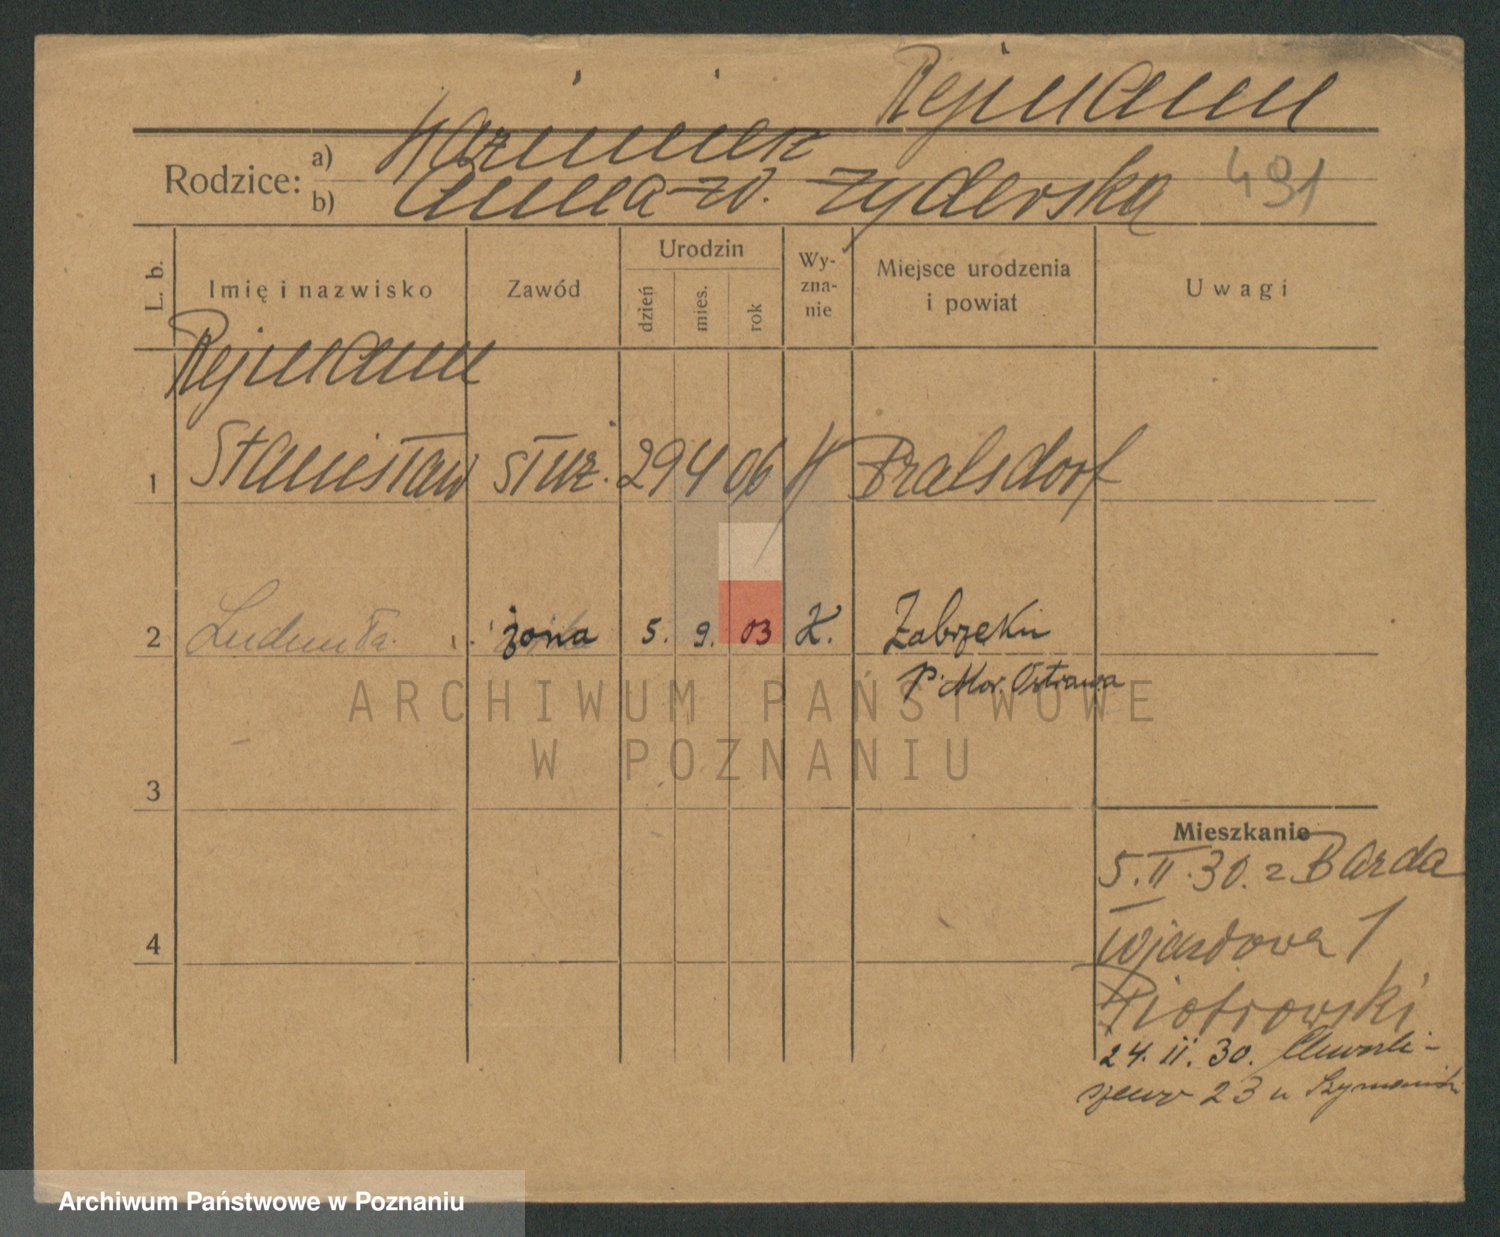 Rejmann
Rodzice: a) Kazimierz
b) Anna zd. Zyderska 491
L. b. Imię i nazwisko Zawód Urodzin dzień mies. rok Wy-zna-nie Miejsce urodzenia i powiat Uwagi
Rejmann
1 Stanisław służ. 29 4 06 K Pralsdorf
2 Ludmiła żona 5. 9. 03 K. Zabrzeku
p. Mor. Ostrawa
ARCHIWUM PAŃSTWOWE
W POZNANIU
3
Mieszkanie
5.II.30. z Barda
4
Wjazdowa 1
Piotrowski
24.II.30. Chwali-
szewo 23 u Szymański
Archiwum Państwowe w Poznaniu